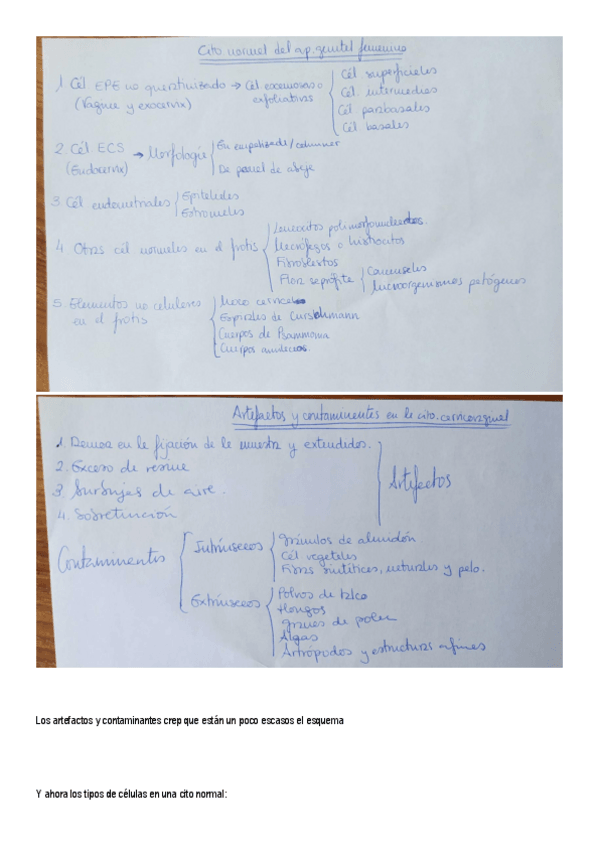 Cito normal del ap. genital femenino
1. Cél EPE no queratinizado → Cél escamosas o exfoliativas
(Vagina y exocervix)
Cél superficiales
Cél intermedias
Cél parabasales
Cél basales
2. Cél ECS → Morfología
(Endocervix)
En empalizada/columnar
De panel de abeja
3. Cél endometriales
Epiteliales
Estromales
4. Otras cél normales en el frotis
Leucocitos polimorfonucleares.
Macrófagos o histiocitos
Fibroblastos
Flora saprófita
Comensales
Microorganismos patógenos
5. Elementos no celulares
en el frotis
Moco cervical
Espirales de Curshmann
Cuerpos de Psammoma
Cuerpos amiláceos.
Artefactos y contaminantes en la cito. cervicovaginal
1. Demora en la fijación de la muestra y extendidos.
2. Exceso de resina
3. Burbujas de aire.
4. Sobretinción
Artefactos
Contaminantes
Intrínsecos
gránulos de almidón
Cél vegetales
Fibras sintéticas, naturales y pelo.
Extrínsecos
Polvos de talco
Hongos
granos de polen
Algas
Artrópodos y estructuras afines
Los artefactos y contaminantes crep que están un poco escasos el esquema
Y ahora los tipos de células en una cito normal: